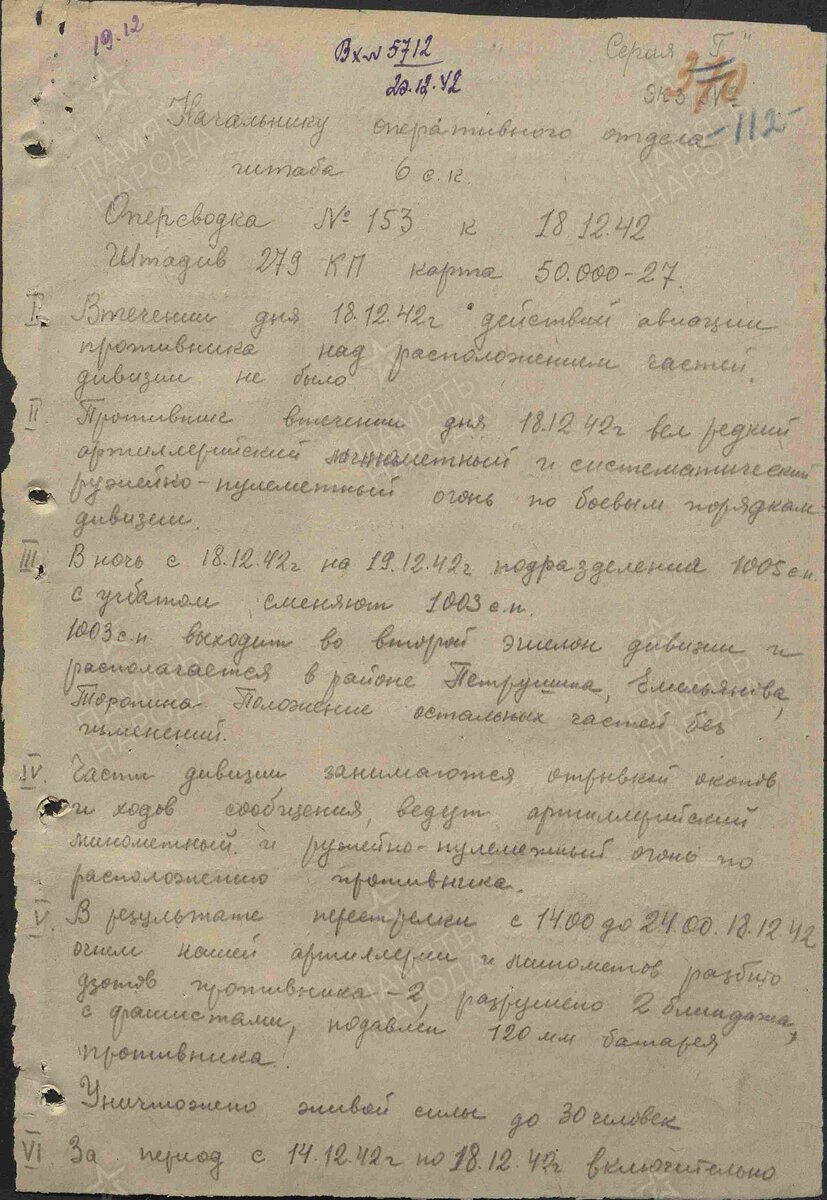 19.12
Вх № 5712
20.12.42
Серия "Г"
Экз №
370
-112-
Начальнику оперативного отдела
штаба 6 с.к.
Оперсводка № 153 к 18.12.42
Штадив 279 КП карта 50.000-27.
I. Втечении дня 18.12.42г действий авиации
противника над расположением частей
дивизии не было
II Противник втечении дня 18.12.42г вел редкий
артиллерийский минометный и систематический
ружейно-пулеметный огонь по боевым порядкам
дивизии.
III. В ночь с 18.12.42г на 19.12.42г подразделения 1005 с.п.
с учбатом сменяют 1003 с.п.
1003 с.п. выходит во второй эшелон дивизии и
располагается в районе Петрушина, Емельянова,
Торопина. Положение остальных частей без
изменений.
IV. Части дивизии занимаются отрывкой окопов
и ходов сообщения, ведут артиллерийский
минометный и ружейно-пулеметный огонь по
расположению противника.
V. В результате перестрелки с 14.00 до 24.00. 18.12.42
огнем нашей артиллерии и минометов разбито
дзотов противника -2, разрушено 2 блиндажа,
с фашистами, подавлен 120 мм батарея
противника.
Уничтожено живой силы до 30 человек
VI За период с 14.12.42г по 18.12.42г включительно